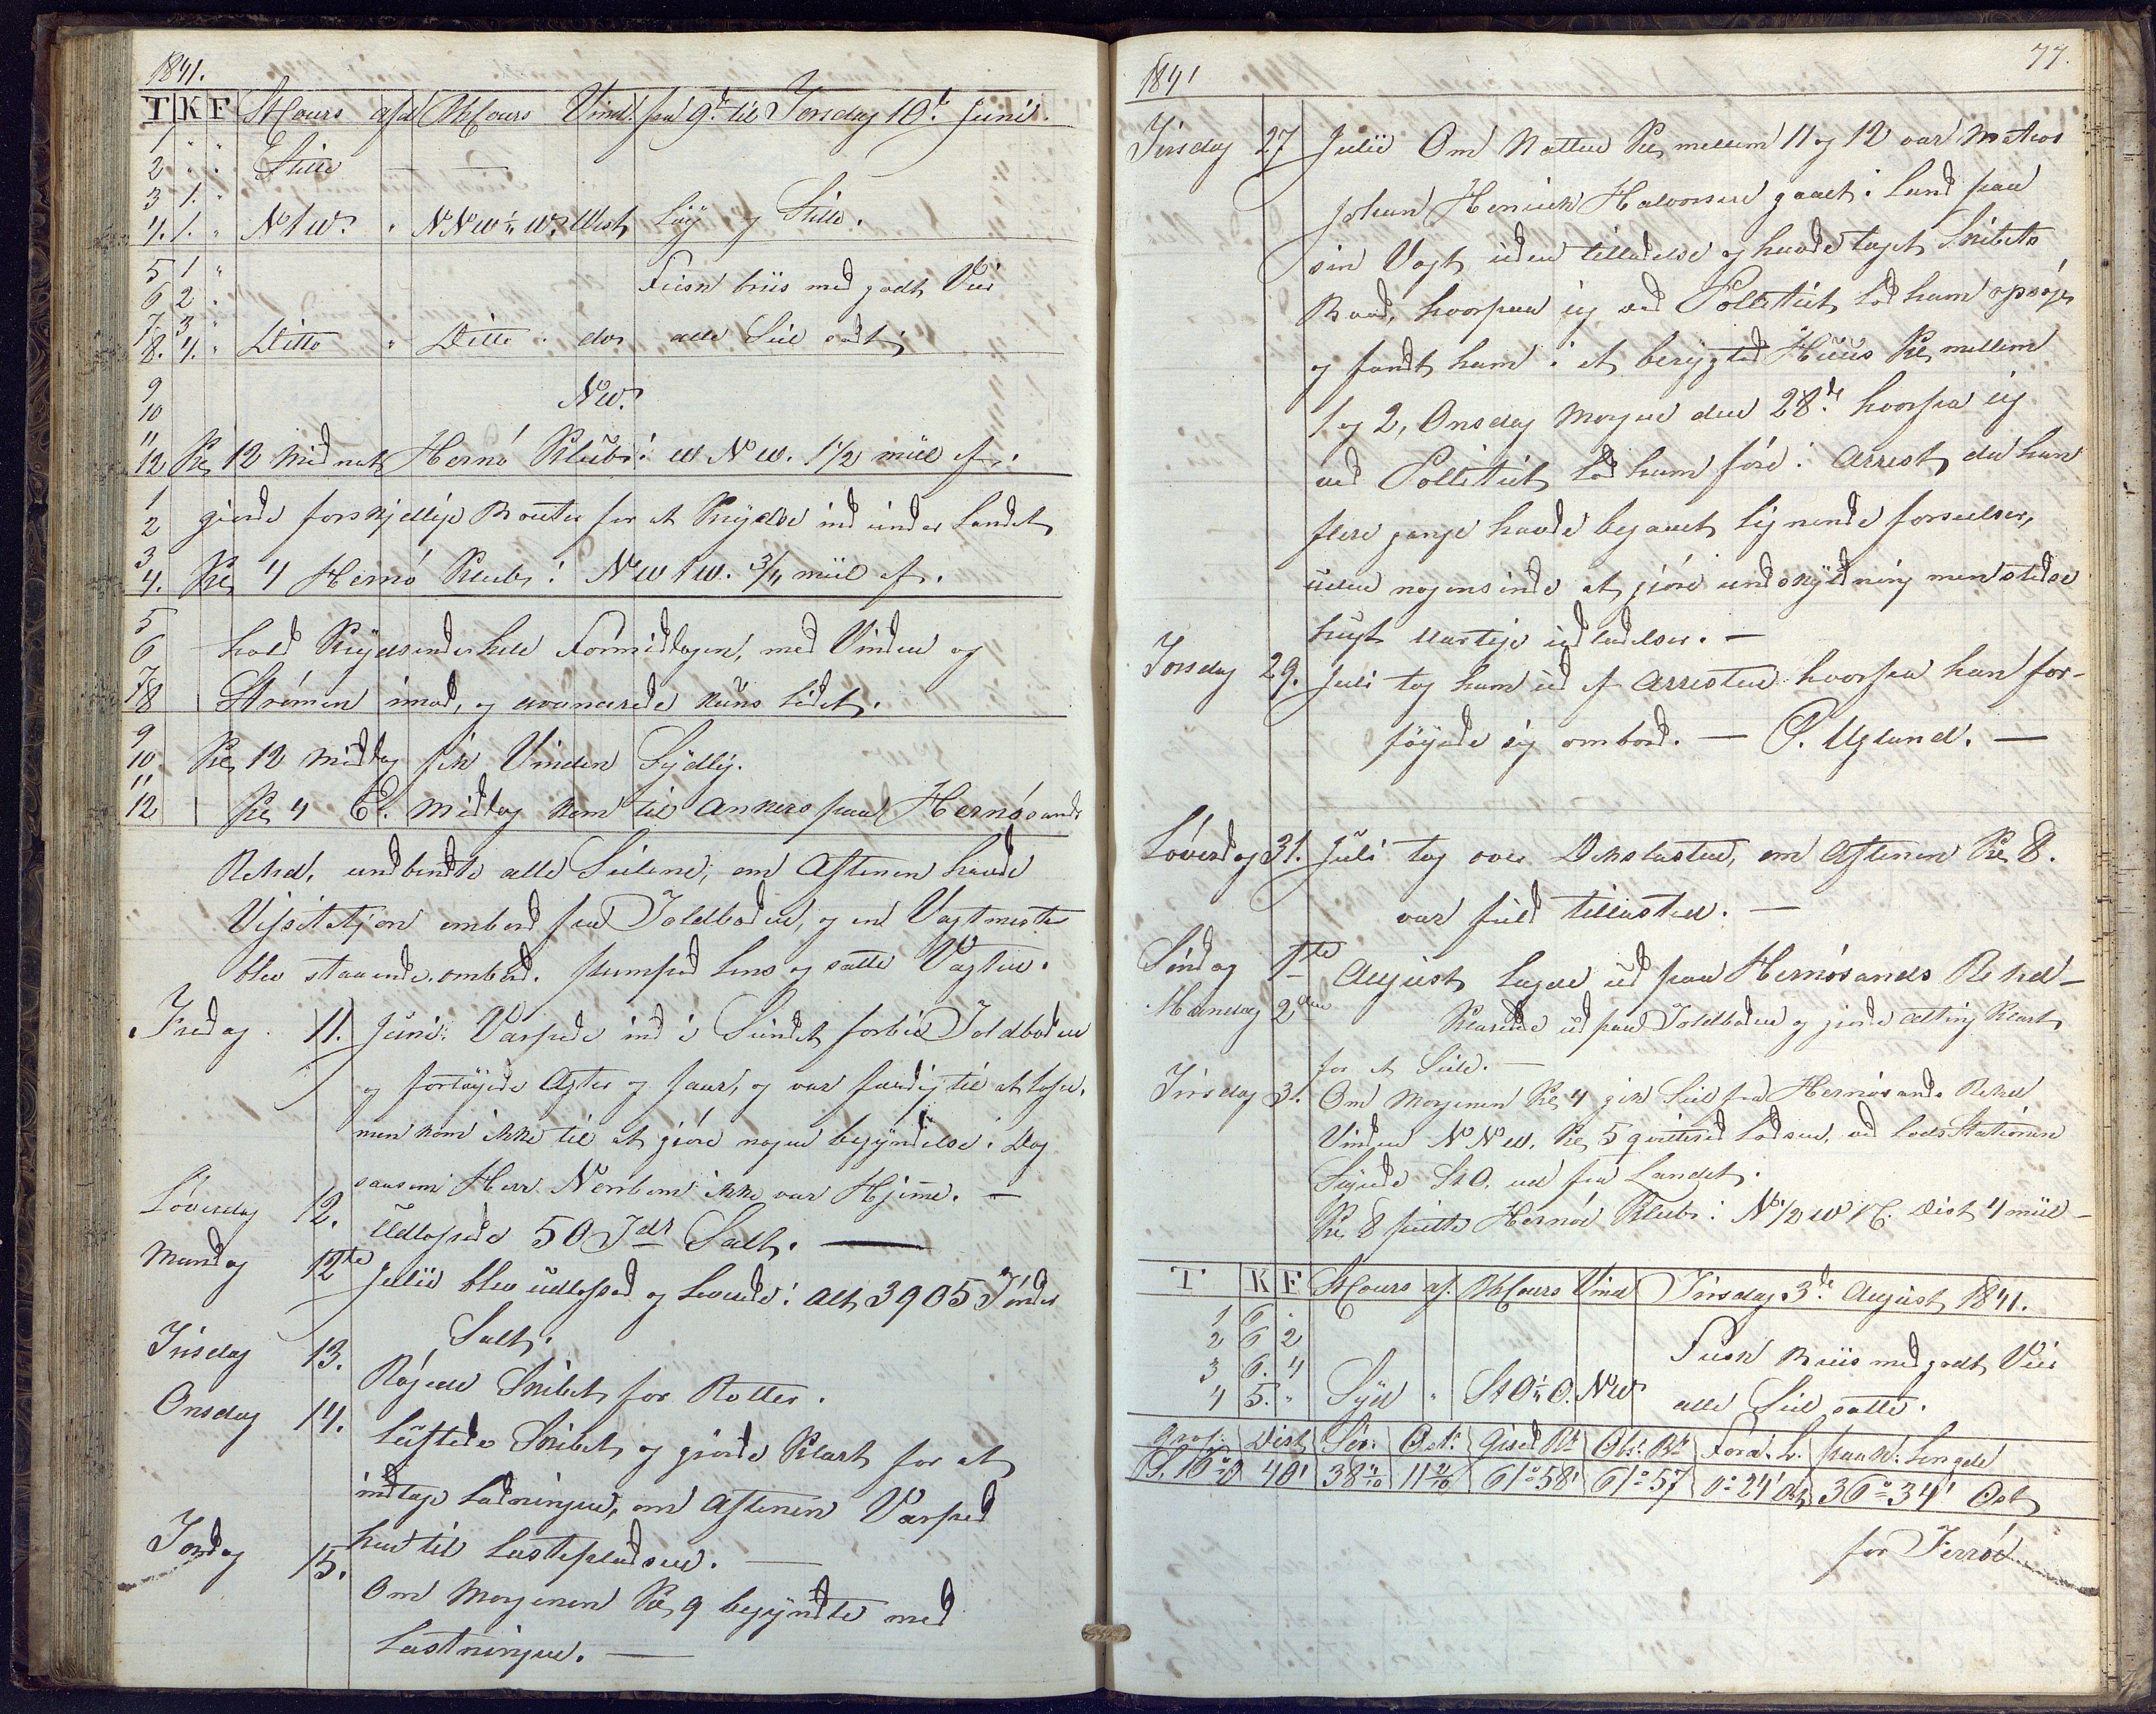 1841.
T K F StCours afd BhCours Vind. fra 9de til Torsdag 10de Juni.
1 " "
2 " " Stille — —
3 1. "
4. 1. " N t W. " NNW ½ W. West Løy og Stille.
5 1 " Frisk briis med godt Veir
6 2 "
7 3 "
8. 4. " Ditto " Ditto " do alle Seil sadt
9 NW.
10
11
12 Kl, 12 Midnat Hernö Klubb i W N W. 1 1/2 miil af.
1
2 giorde forskjellige Bouter for at Krydse ind under Landet
3
4. Kl, 4 Hernö Klub i NW t W. 3/4 miil af.
5
6 holdt Krydsende hele Formiddagen, med Vinden og
7
8 Strømen imod, og avancerede kuns lidet.
9
10 Kl, 12 middag fik Vinden Sydlig.
11
12 Kl, 4 E. Middag kom til Ankers paa Hernösands
Rehd, undbendte alle Seilene, om Aftenen havde
Visitatsjon ombord fra Toldboden, og en Vagtmester
blev staaende ombord. pumped Lens og satte Vagten.
Fredag 11. Juni. Varpede ind i Sundet forbie Toldboden
og fortøyede Agter og faar, og var færdig til at losse.
men kom ikke til at giøre nogen begyndelse i Dag
saasom Herr Nenbom ikke var Hjeme. —
Löverdag 12. Udlossede 50 Tdr Salt. —
Mandag 12te Julii blev udlossed og Leverede i alt 3905 Tönder
Salt.
Tirsdag 13. Røgede Skibet for Rotter.
Onsdag 14. Luftede Skibet og giorde Klart for at
indtage Ladningen, om Aftenen Varped
hen til Lastepladsen. —
Tordag 15. Om Morgenen Kl, 9 begyndte med
Lastningen. —
1841 77.
Tirsdag 27 Julii Om Natten Kl, mellem 11 og 12 var Matros
Johan Henrich Halvorsen gaaet i Land fra
sin Vagt uden tilladelse og havde taget Skibets
Baad, hvorpaa ieg ved Politiet lod ham opsøge
og fandt ham i et berygted Huus Kl, mellem
1 og 2, Onsdag Morgen den 28de hvorfra ieg
ved Politiet lod ham føre i Arrest, da han
flere gange havde begaaet lignende forseelser,
uden nogensinde at giøre undskyldning men stedse
brugt uartige udladelser. —
Torsdag 29. Juli tog ham ud af Arresten hvorfra han for-
føyede sig ombord. — P. Ugland. —
Löverdag 31. Juli tog over Dekslasten, om Aftenen Kl, 8.
var fuld tillasted. —
Søndag 1te August Lagde ud paa Hernösands Rehd —
Mandag 2den Klarede ud paa Toldboden og giorde Alting Klart
for at Seile. —
Tirsdag 3. Om Morgenen Kl, 4 gik Seil fra Hernösands Rehd
Vinden NNW. Kl, 5 qvitered Lodsen, ved Lods Stationen
Styrede StO. ud fra Landet.
Kl, 8 peilte Hernöe Klub i N 1/2 W t C. Dist 4 miil —
T K F StCours af. BhCours Vind Tirsdag 3de August 1841.
1 6 "
2 6 2 Frisk Briis med godt Veir
3 6. 4
4 5. " Syd " StO ½ O. NW alle Seil satte.
Gros. Dist Sör. Ost. Gised Bd Obs. Bd Forad. L. paak. Lengde
S. 16° O 40' 38 4/10 11 2/10 61° 58' 61° 57 0° 24' Ost 36° 34' Ost
for Ferröe